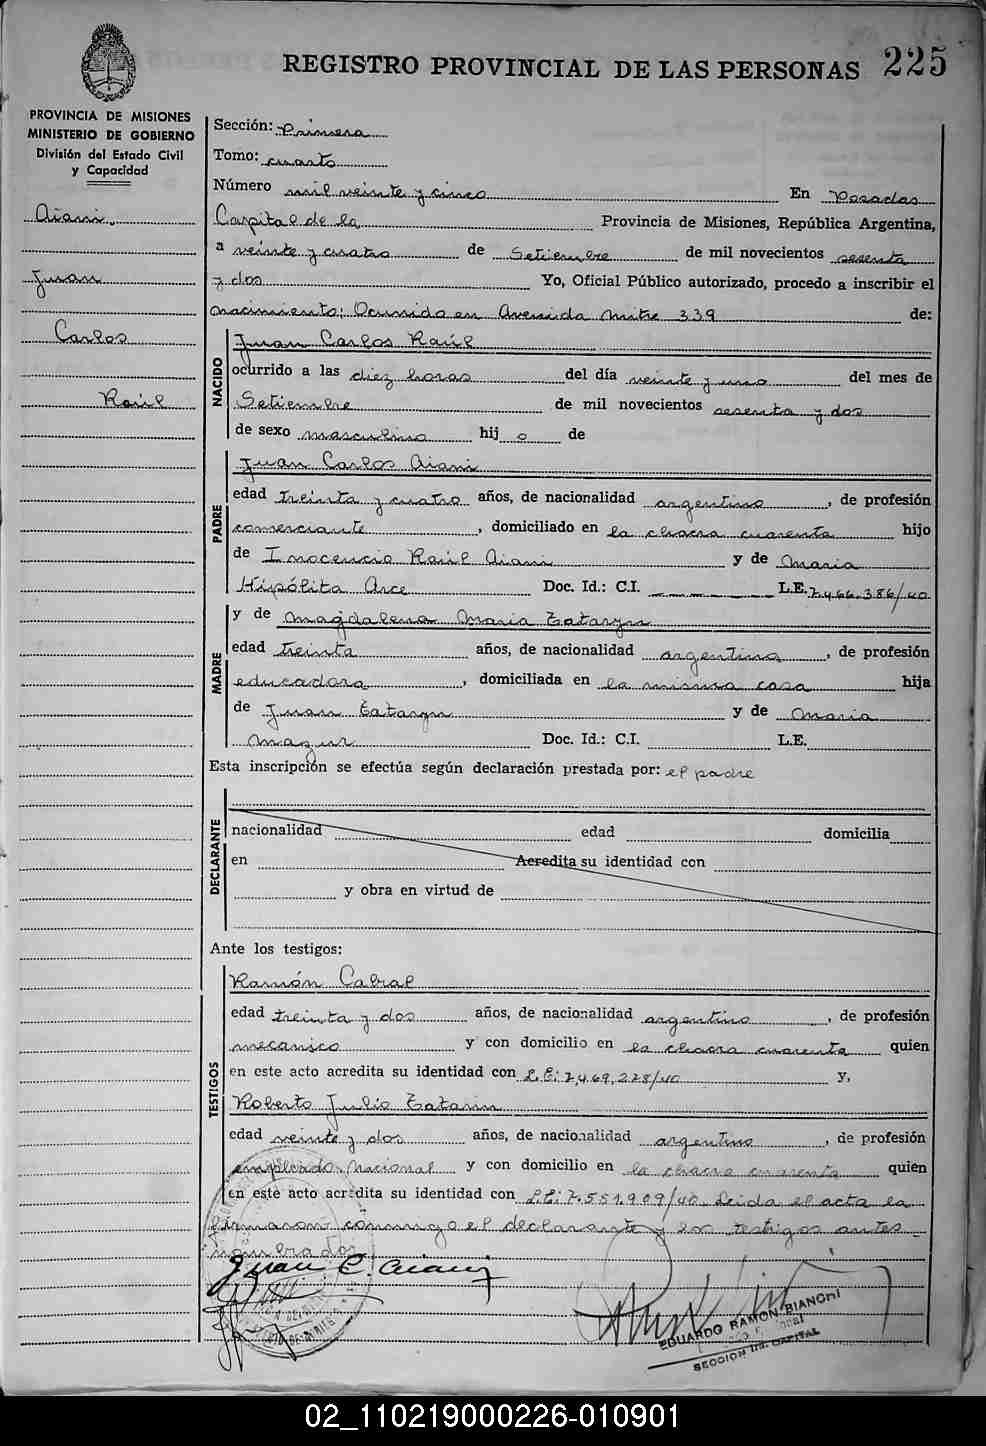 REGISTRO PROVINCIAL DE LAS PERSONAS 225
PROVINCIA DE MISIONES
MINISTERIO DE GOBIERNO
División del Estado Civil
y Capacidad
Aiani
Juan
Carlos
Raúl
Sección: Primera
Tomo: cuarto
Número mil veinte y cinco En Posadas
Capital de la Provincia de Misiones, República Argentina,
a veinte y cuatro de Setiembre de mil novecientos sesenta
y dos Yo, Oficial Público autorizado, procedo a inscribir el
nacimiento: Ocurrido en Avenida Mitre 339 de:
NACIDO
Juan Carlos Raúl
ocurrido a las diez horas del día veinte y uno del mes de
Setiembre de mil novecientos sesenta y dos
de sexo masculino hij o de
PADRE
Juan Carlos Aiani
edad treinta y cuatro años, de nacionalidad argentino, de profesión
comerciante, domiciliado en la chacra cuarenta hijo
de Inocencio Raúl Aiani y de Maria
Hipólita Arce Doc. Id.: C.I. L.E. 7.466.386/40
MADRE
y de Magdalena Maria Tataryn
edad treinta años, de nacionalidad argentina, de profesión
educadora, domiciliada en la misma casa hija
de Juan Tataryn y de Maria
Mazur Doc. Id.: C.I. L.E.
Esta inscripción se efectúa según declaración prestada por: el padre
DECLARANTE
nacionalidad edad domicilia
en Acredita su identidad con
y obra en virtud de
Ante los testigos:
TESTIGOS
Ramón Cabral
edad treinta y dos años, de nacionalidad argentino, de profesión
mecanico y con domicilio en la chacra cuarenta quien
en este acto acredita su identidad con L.E: 7.469.228/40 y,
Roberto Julio Tatarin
edad veinte y dos años, de nacionalidad argentino, de profesión
empleado Nacional y con domicilio en la chacra cuarenta quien
en este acto acredita su identidad con L.E: 7.551.909/40. Leida el acta la
firmaron conmigo el declarante y los testigos antes
nombrados
Juan C. Aiani
EDUARDO RAMON BIANCHI
SECCION 1ra. CAPITAL
02_110219000226-010901